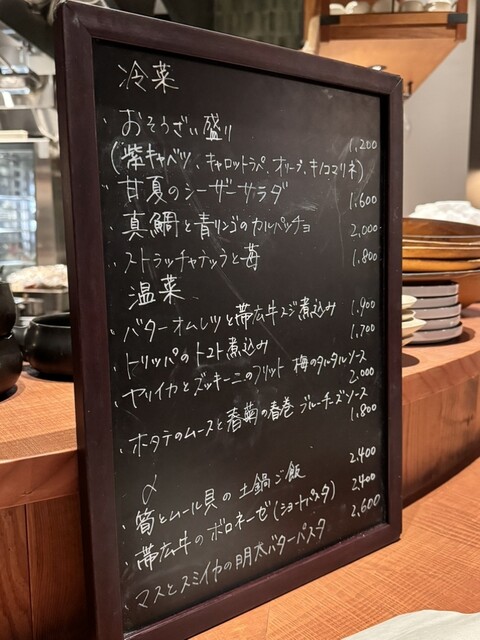 冷菜
・おそうざい盛り 1,200
(紫キャベツ、キャロットラペ、オリーブ、キノコマリネ)
・甘夏のシーザーサラダ 1,600
・真鯛と青リンゴのカルパッチョ 2,000
・ストラッチャテッラと苺 1,800
温菜
・バターオムレツと帯広牛スジ煮込み 1,900
・トリッパのトマト煮込み 1,700
・ヤリイカとズッキーニのフリット 梅のタルタルソース 2,000
・ホタテのムースと春菊の春巻 ブルーチーズソース 1,800
〆
・筍とムール貝の土鍋ご飯 2,400
・帯広牛のボロネーゼ(ショートパスタ) 2,400
・マスとスミイカの明太バターパスタ 2,600